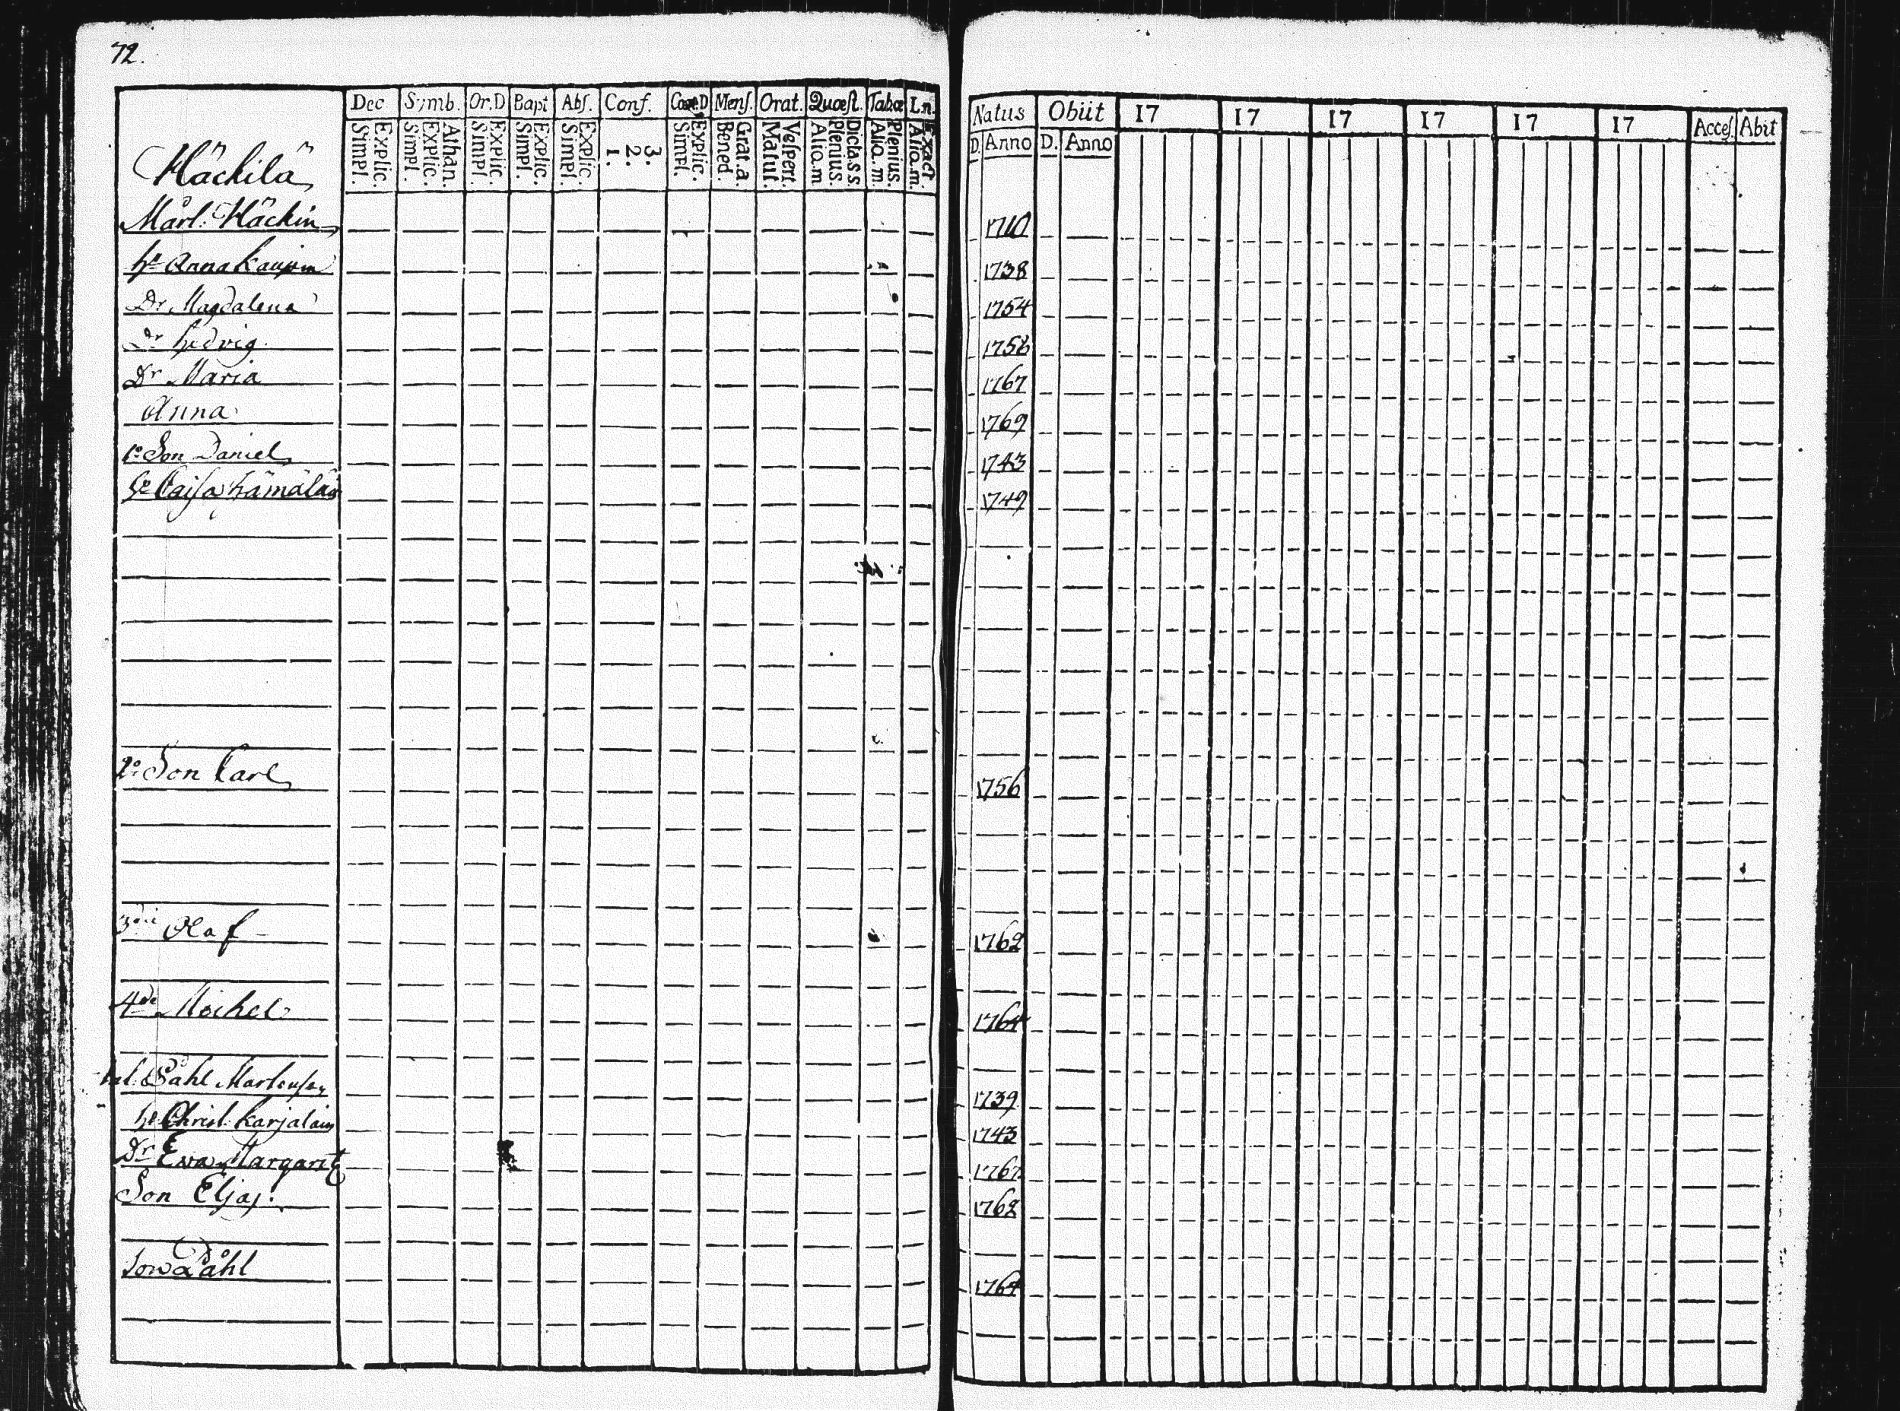 72.
Dec Symb. Or.D Bapt Abs. Conf. Cœn.D Mens. Orat. Quœst. Tabœ I.n. Natus Obiit 17 17 17 17 17 17 Acces. Abit
Explic. Simpl. Athan. Explic. Simpl. Explic. Simpl. Explic. Simpl. Explic. Simpl. 3. 2. 1. Explic. Simpl. Grat.a. Bened. Vespert. Matut. Dicta.s.s. Plenius. Aliq.m Plenius. Aliq.m. Exact. Aliq.m. D. Anno D. Anno
Häckilä
Mårt. Häckin 1710
h: Anna Kaupin 1738
Dr Magdalena 1754
Dr hedvig 1756
Dr Maria 1767
Anna 1769
1: Son Daniel 1743
h: Caisa hämäläin 1749
2: Son Carl 1756
3die Olaf 1762
4de Michel 1764
Påhl Mårtensson 1739
h: Christ. Karjalain 1743
Dr Eva Margaret 1767
Son Eljas: 1762
Son Påhl 1764